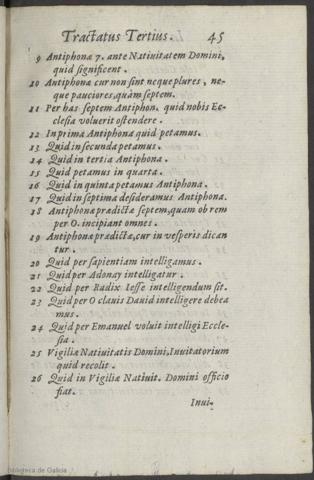 Tractatus Tertius. 45
9 Antiphonæ 7. ante Natiuitatem Domini,
quid significent.
10 Antiphonæ cur non sint neque plures, ne-
que pauciores, quàm septem.
11 Per has septem Antiphon. quid nobis Ec-
clesia voluerit ostendere.
12 In prima Antiphona quid petamus.
13 Quid in secunda petamus.
14 Quid in tertia Antiphona.
15 Quid petamus in quarta.
16 Quid in quinta petamus Antiphona.
17 Quid in septima desideramus Antiphona.
18 Antiphonæ prædictæ septem, quam ob rem
per O. incipiant omnes.
19 Antiphonæ prædictæ, cur in vesperis dican
tur.
20 Quid per sapientiam intelligamus.
21 Quid per Adonay intelligatur.
22 Quid per Radix Iesse intelligendum sit.
23 Quid per O clauis Dauid intelligere debea
mus.
24 Quid per Emanuel voluit intelligi Eccle-
sia.
25 Vigiliæ Natiuitatis Domini, Inuitatorium
quid recolit.
26 Quid in Vigiliæ Natiuit. Domini officio
fiat.
Inui-
Biblioteca de Galicia